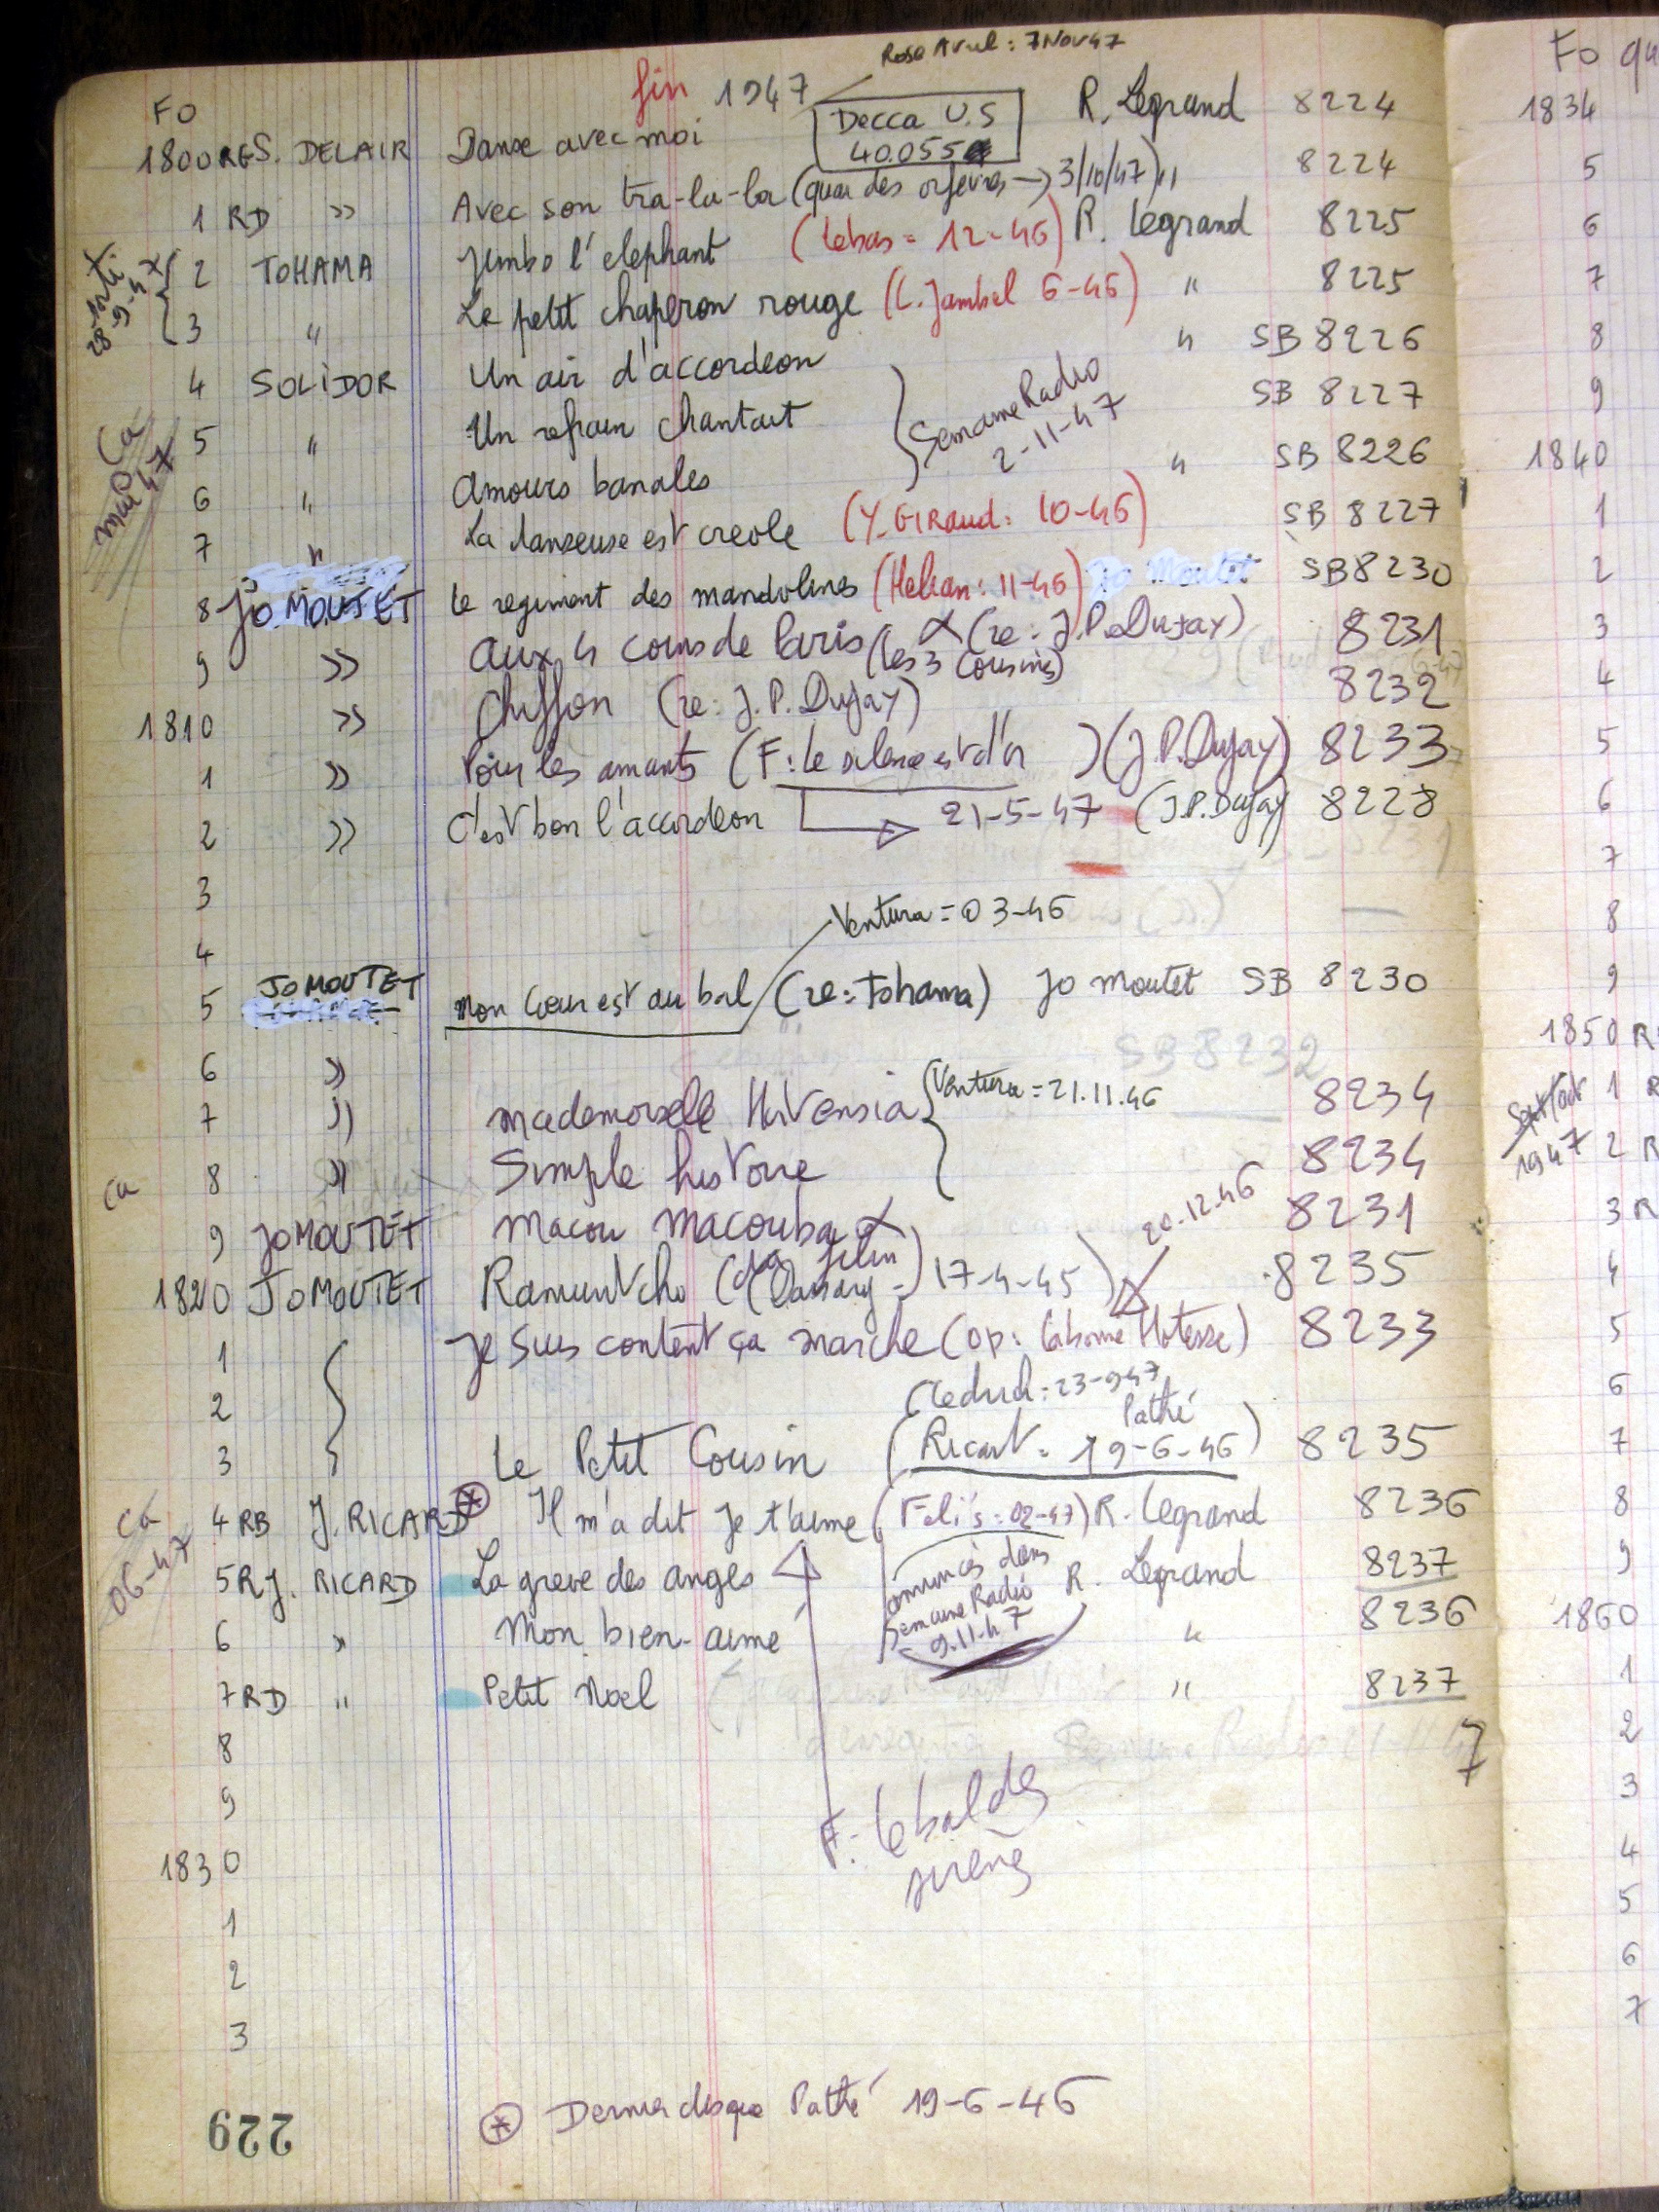 Rose Avril : 7 Nov 47
FO
fin 1947
Decca U.S
40.055
1800 RG S. DELAIR Danse avec moi R. Legrand 8224
1 RD » Avec son tra-la-la (quai des orfevres → 3/10/47) " 8224
2 TOHAMA Jumbo l'elephant (Lebas = 12-46) R. Legrand 8225
3 " Le petit chaperon rouge (L. Jambel 6-46) " 8225
28-9-47
4 SOLIDOR Un air d'accordeon " SB 8226
5 " Un refrain chantait SB 8227
Semaine Radio
2-11-47
Ca
mai 47
6 " Amours banales " SB 8226
7 " La danseuse est creole (Y. GIRaud : 10-46) SB 8227
8 Jo MOUTET Le regiment des mandolines (Helian : 11-46) Jo Moutet SB 8230
9 » Aux 4 coins de Paris (les 3 Cousins) (re : J.P. Dujay) 8231
1810 » Chiffon (re : J.P. Dujay) 8232
1 » Pour les amants (F : Le silence est d'or) (J.P. Dujay) 8233
2 » C'est bon l'accordeon 21-5-47 (J.P. Dujay) 8228
3
4
Ventura = 03-46
5 JO MOUTET Mon Coeur est au bal (re : Tohama) Jo Moutet SB 8230
6 »
7 » Mademoiselle Hortensia (Ventura = 21.11.46 8234
ca 8 » Simple histoire 8234
9 JO MOUTET Macou Macouba 8231
1820 JO MOUTET Ramuntcho (du film) (Dassary = 17-4-45) 8235
20-12-46
1 Je suis content ça marche (op : la bonne Hotesse) 8233
2 23-9-47
3 Le Petit Cousin (Ricart = Pathé 19-6-46) 8235
Ca
06-47
4 RB J. RICARD * Il m'a dit je t'aime (Feli's : 02-47) R. Legrand 8236
5 R J. RICARD La greve des anges R. Legrand 8237
annoncés dans
Semaine Radio
9.11.47
6 » Mon bien-aimé " 8236
7 RD " Petit Noel " 8237
7
8
9
F. Le bal des
sirènes
1830
1
2
3
* Dernier disque Pathé 19-6-46
229
FO qu
1834
5
6
7
8
9
1840
1
2
3
4
5
6
7
8
9
1850 R
1 R
1947 2 R
3 R
4
5
6
7
8
9
1860
1
2
3
4
5
6
7